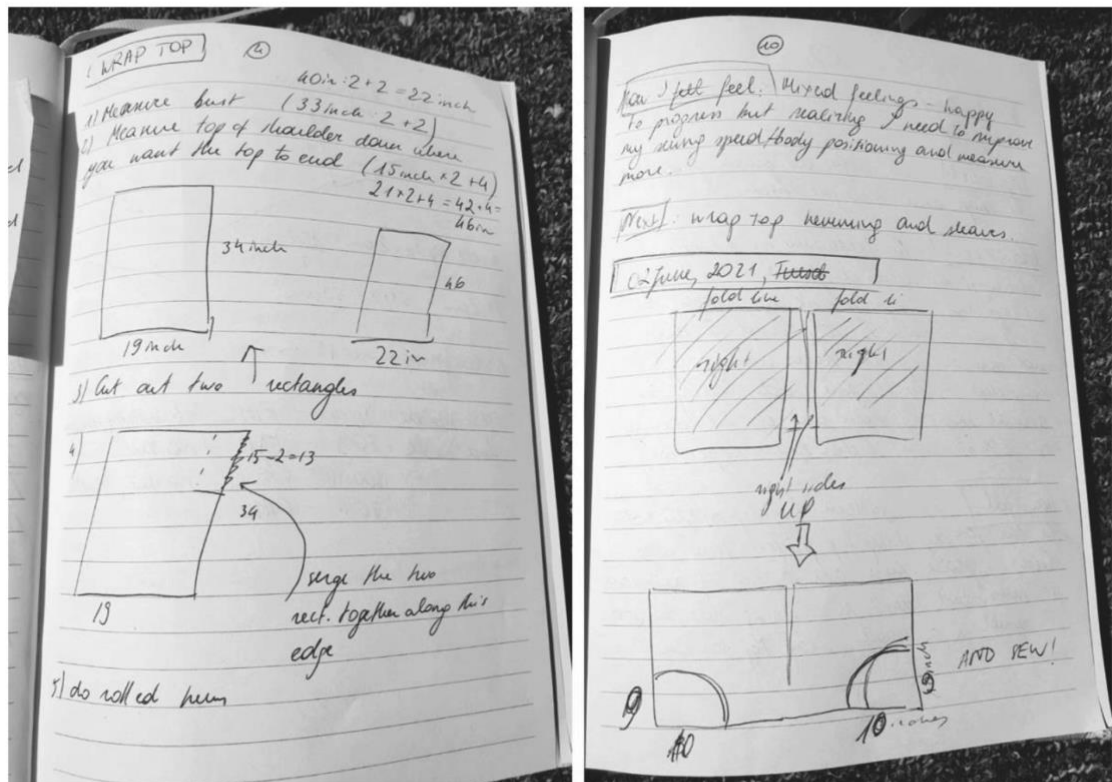 WRAP TOP
4
40in:2+2=22inch
1) Measure bust (33inch:2+2)
2) Measure top of shoulder down where
you want the top to end (15inch×2+4)
21×2+4=42+4=
46in
34inch
46
19inch
22in
3) Cut out two rectangles
4)
15-2=13
34
serge the two
rect. together along this
edge
19
5) do rolled hems
10
How I felt feel: Mixed feelings - happy
to progress but realizing I need to improve
my sewing speed+body positioning and measure
more.
Next: wrap top hemming and sleaves.
02 June, 2021,
fold line fold li
right right
right sides
UP
9 inch
AND SEW!
9
10
10 inches